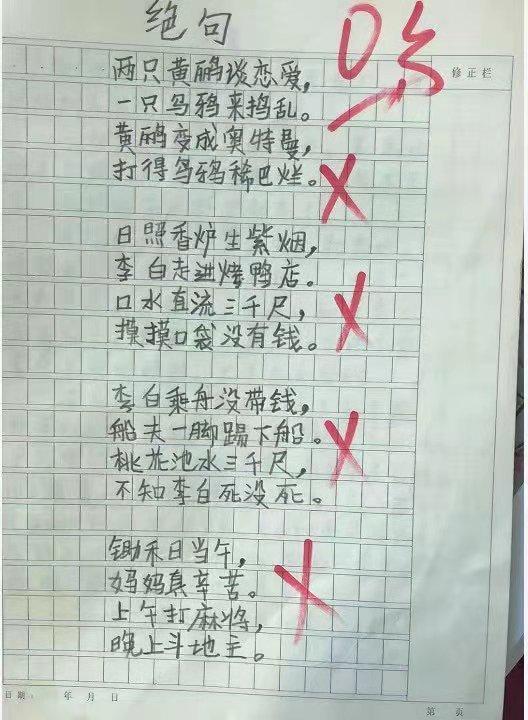 绝句
0分
修正栏
两只黄鹂谈恋爱，
一只乌鸦来捣乱。
黄鹂变成奥特曼，
打得乌鸦稀巴烂。
日照香炉生紫烟，
李白走进烤鸭店。
口水直流三千尺，
摸摸口袋没有钱。
李白乘舟没带钱，
船夫一脚踢下船。
桃花池水三千尺，
不知李白死没死。
锄禾日当午，
妈妈真辛苦。
上午打麻将，
晚上斗地主。
日期： 年 月 日
第 页